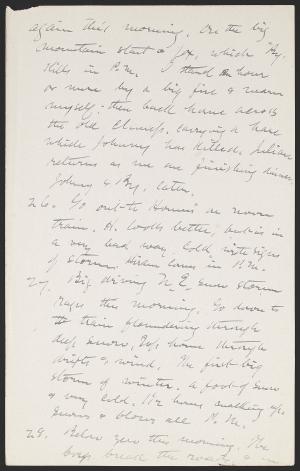 again this morning. On the big
mountain start a fox, which By.
kills in P.M. I stand an hour
or more by a big fire & warm
myself; then back home across
the old Clumps, carrying a hare
which Johnny has killed. Julian
returns as we are finishing dinner.
Johnny & By. later.
26. Go out to Homer's on noon
train. H. looks better, but is in
a very bad way. Cold with signs
of storm. Hiram comes in P.M.
27. Big driving N.E. snow storm
rages this morning. Go down to
train floundering through
deep snow, & home through
drifts & wind. The first big
storm of winter. A foot of snow
& very cold. We hours
Snows & blows all P.M.
28. Below zero this morning. The
boys break the roads & in